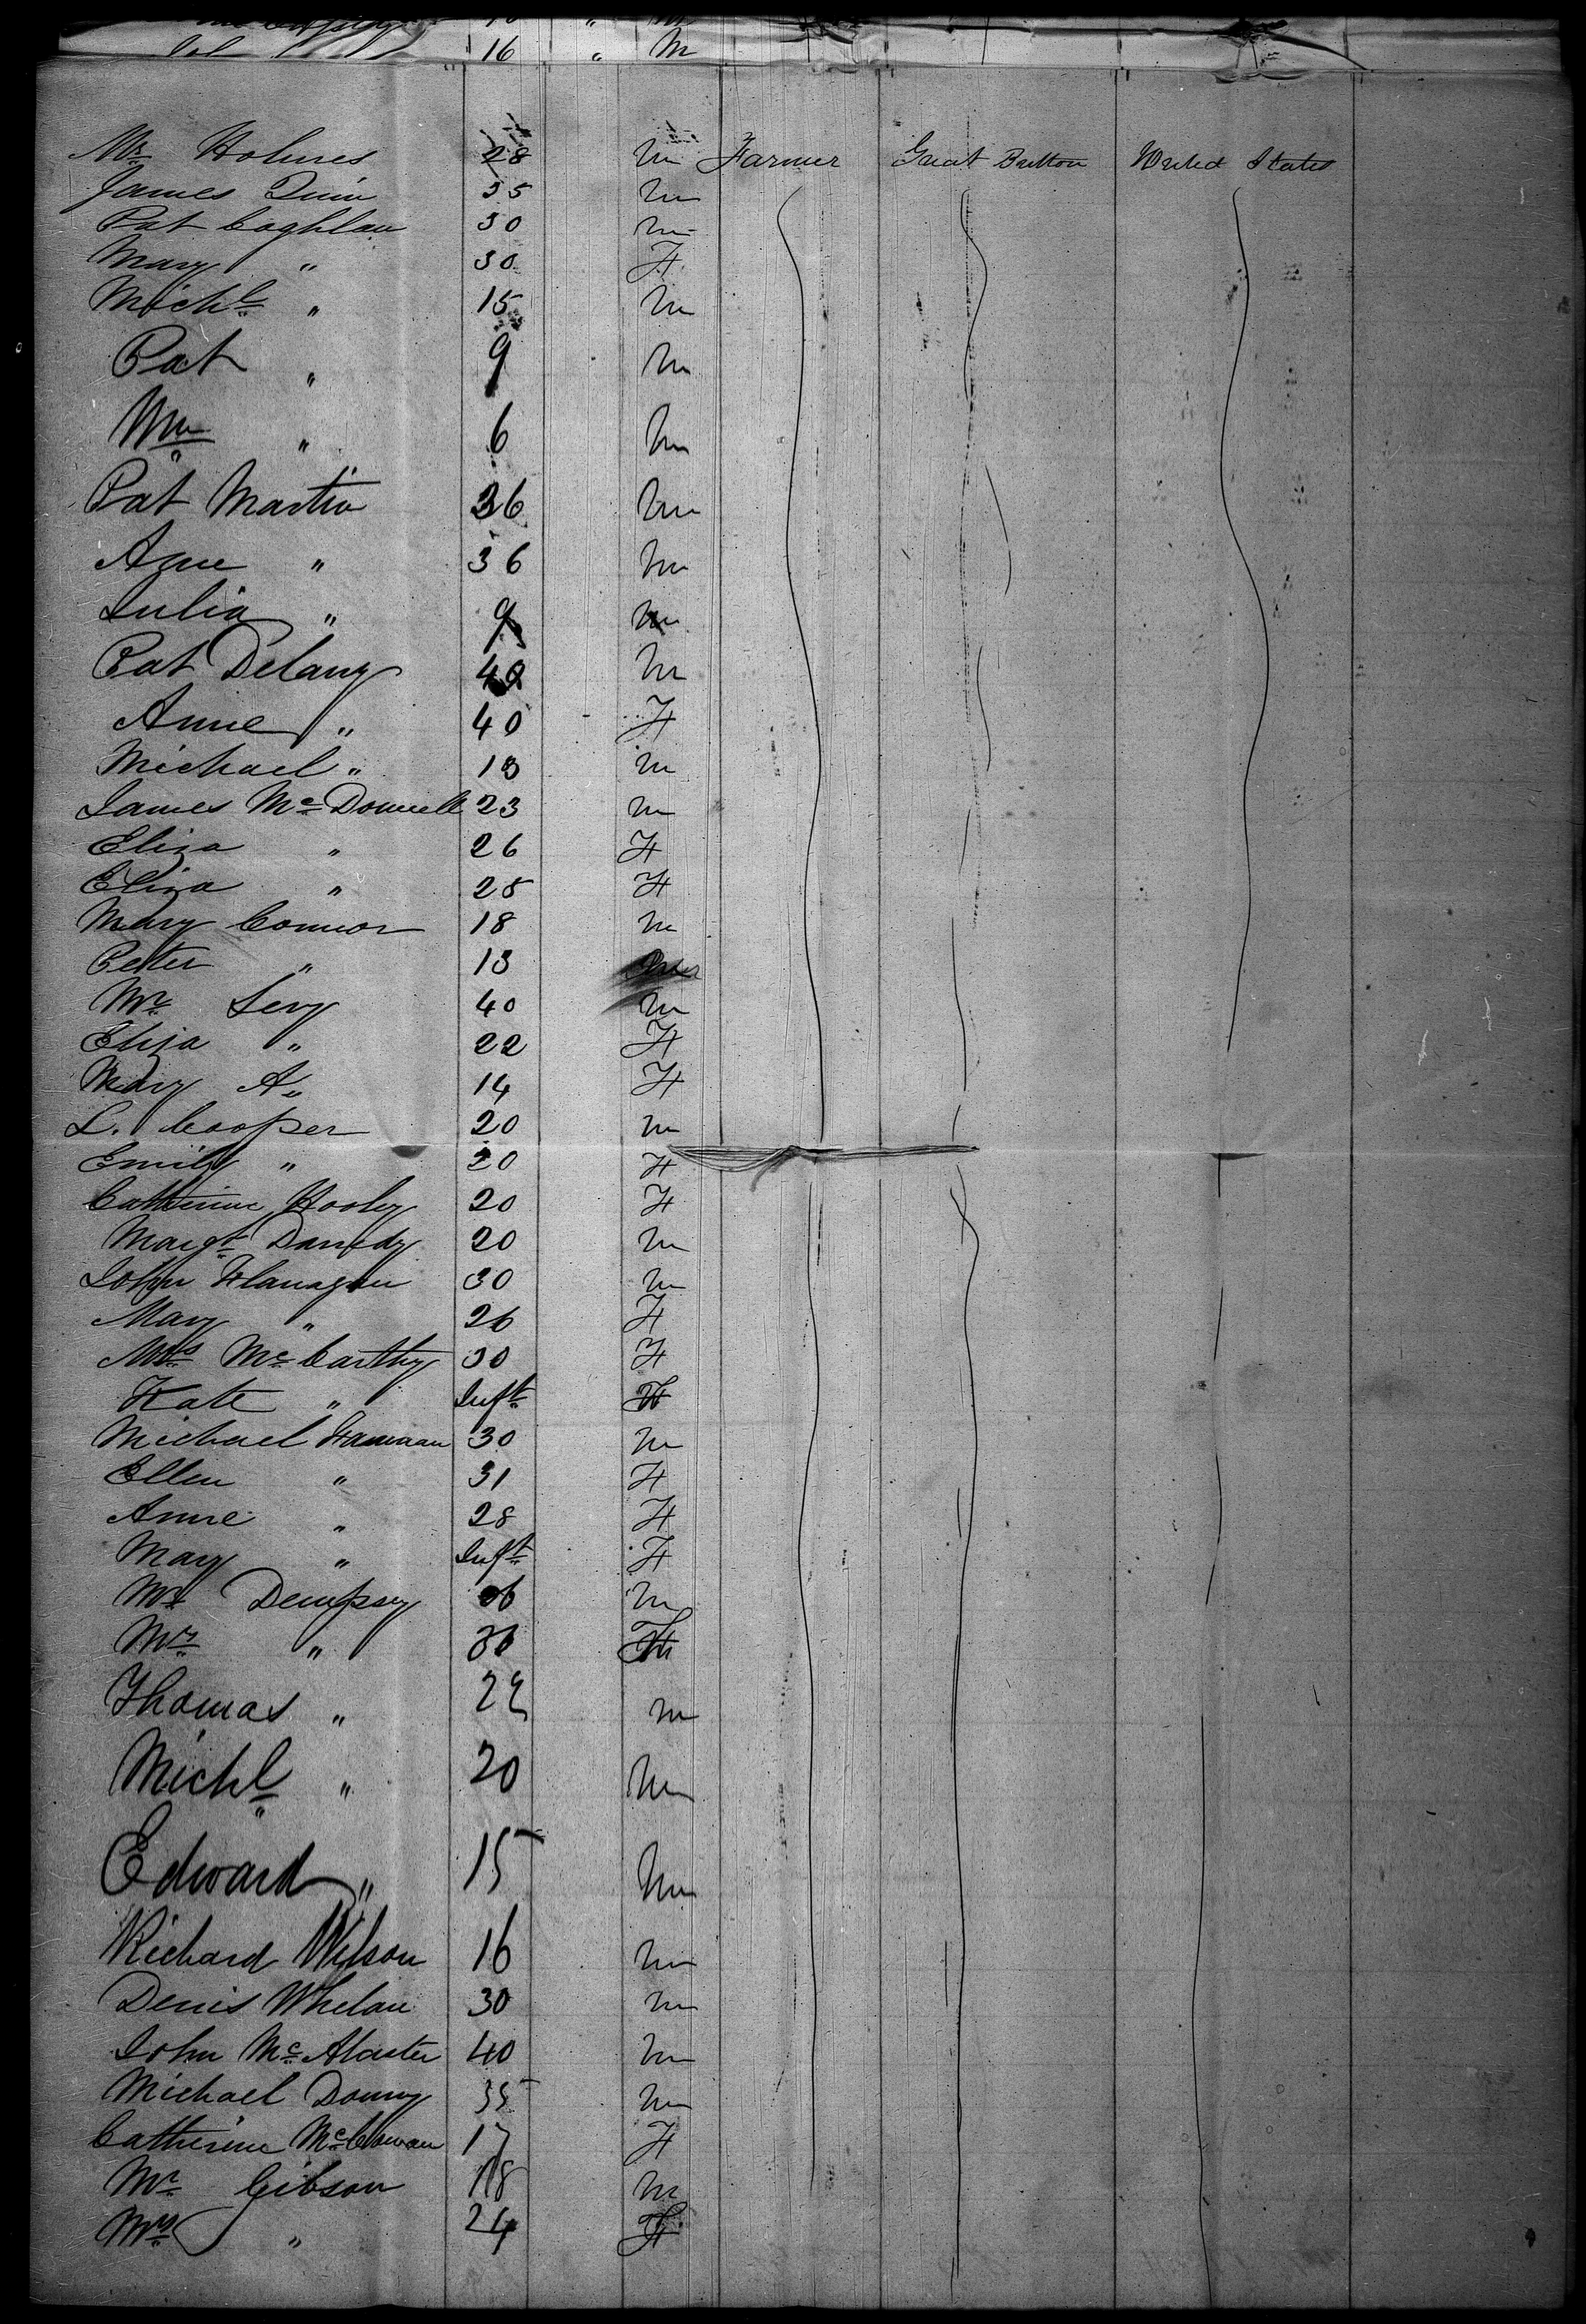 16 " M
Mr Holmes 28 M Farmer Great Britton United States
James Quin 35 M
Pat Coghlan 30 M
Mary " 30 F
Michl " 15 M
Pat " 9 M
Wm " 6 M
Pat Martin 36 M
Anne " 36 M
Julia " 9 M
Pat Delany 40 M
Anne " 40 F
Michael " 13 M
James McDonnell 23 M
Eliza " 26 F
Eliza " 25 F
Mary Connor 18 M
Peter " 13
Mr Levy 40 M
Eliza " 22 F
Mary A " 14 F
L. Cooper 20 M
Emily " 20 F
Catherine Hooley 20 F
Margt 20 M
John Flanagan 30 M
Mary " 26 F
Mrs McCarthy 30 F
Kate " Inft F
Michael 30 M
Ellen " 31 F
Anne " 28 F
Mary " Inft F
Mr Dempsey 36 M
Mrs " 36 F
Thomas " 22 M
Michl " 20 M
Edward " 15 M
Richard Wilson 16 M
Denis Whelan 30 M
John McAlaster 40 M
Michael 35 M
Catherine McCowan 17 F
Mr Gibson 18 M
Mrs " 24 F